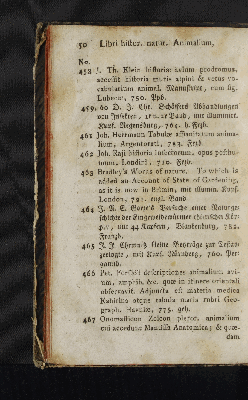 50 Libri histor. natur. Animalium,
No.
458 J. Th. Klein historiae avium prodromus,
accessit historia muris alpini & vetus vo-
cabularium animal. Manuscript, cum fig.
Lubecae, 750. Ppb.
459, 60 D. J. Chr. Schäffers Abhandlungen
von Insekten, Band, mit illuminirt.
Kupf. Regensburg, 764. h. Frzb.
461 Joh. Hermann Tabulae affinitatum anima-
lium, Argentorati, 783. Frzb
462 Joh. Raji historia insectorum, opus posthu-
mum, Londini, 710. Frzb.
463 Bradley's Works of nature. To which is
added an Account of State of Gardening,
as it is now in Britain, mit illumin. Kupf.
London, engl. Band
464 J. A. E. Goeze Versuche einer Naturge-
schichte der Eingeweidewürmer thierischer Kör-
per, mit 44 Kupfern, Blankenburg, 782.
Franzb.
465 J. J. Chemnitz kleine Beyträge zur Testa-
zeologie, mit Kupf. Nürnberg, 760. Per-
gamb.
466 Pet. Forskål descriptiones animalium avi-
um, amphib. &c. quae in itinere orientali
observavit. Adjuncta est materia medica
Kahirina atque tabula maris rubri Geo-
graph. Havniae, 775. geh.
467 Onomasticon Zoicon pleror. animalium
cui accedunt Mantissa Anatomica; & quae-
dam